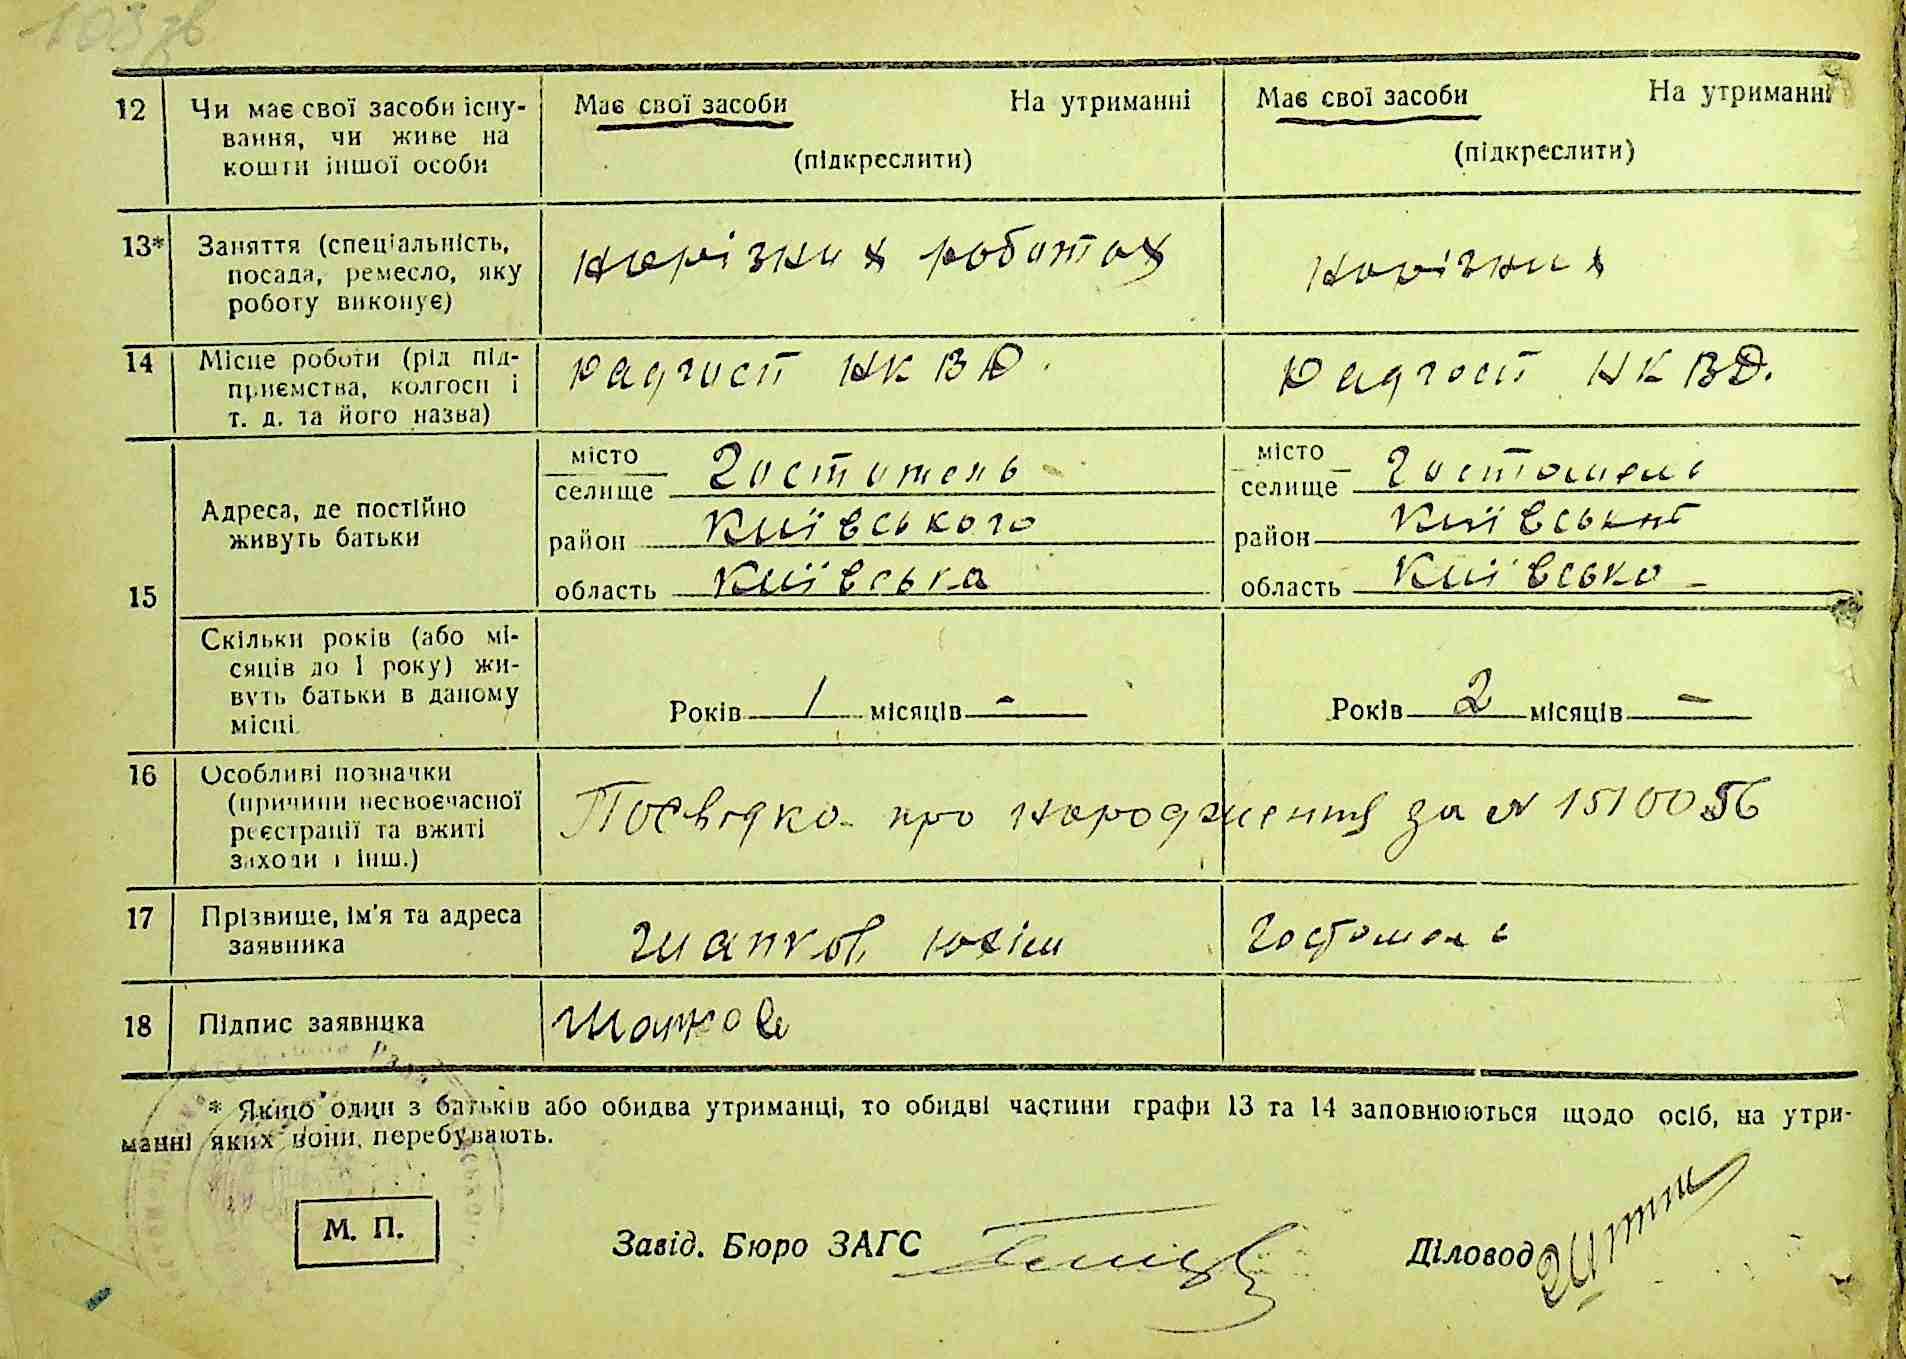 103 зв
12 Чи має свої засоби існу- Має свої засоби На утриманні Має свої засоби На утриманні
вання, чи живе на
кошти іншої особи (підкреслити) (підкреслити)
13* Заняття (спеціальність,
посада, ремесло, яку
роботу виконує) на різних роботах на різних
14 Місце роботи (рід під-
приємства, колгосп і
т. д. та його назва) Радгосп НКВД. Радгосп НКВД.
15 Адреса, де постійно
живуть батьки
місто
селище Гостомель місто
селище Гостомель
район Київського район Київський
область Київська область Київсько
Скільки років (або мі-
сяців до 1 року) жи-
вуть батьки в даному
місці. Років 1 місяців - Років 2 місяців -
16 Особливі позначки
(причини несвоєчасної
реєстрації та вжиті
заходи і інш.) Посвідка про народження за № 1510056
17 Прізвище, ім'я та адреса
заявника Шапков Юхім Гостомель
18 Підпис заявника Шапков
* Якщо один з батьків або обидва утриманці, то обидві частини графи 13 та 14 заповнюються щодо осіб, на утри-
манні яких вони, перебувають.
М. П. Завід. Бюро ЗАГС Діловод